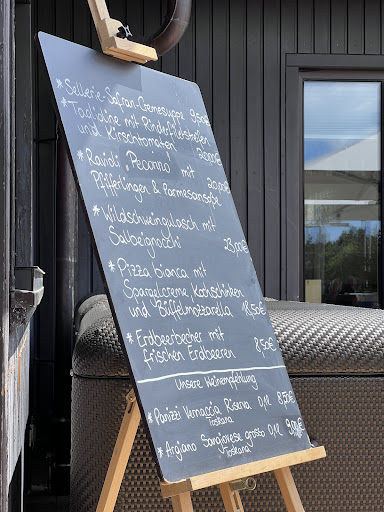 * Sellerie-Safran-Cremesuppe 9,50€
* Taglioline mit Rinderfiletstreifen
und Kirschtomaten 22,00€
* Ravioli „Pecorino" mit
Pfifferlingen & Parmesansoße 20,00€
* Wildschweingulasch mit
Salbeignocchi 23,00€
* Pizza bianca mit
Spargelcreme, Kochschinken
und Büffelmozzarella 18,50€
* Erdbeerbecher mit
frischen Erdbeeren 8,50€
Unsere Weinempfehlung
* Panizzi Vernaccia Riserva 0,1l 8,50€
Toskana
* Argiano Sangiovese grosso 0,1l
Toskana